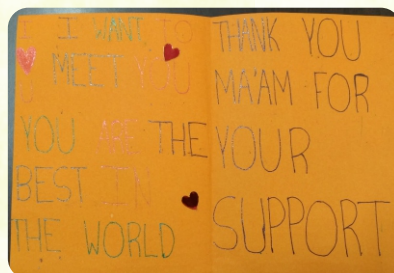 I WANT TO
MEET YOU
YOU ARE THE
BEST IN
THE WORLD
THANK YOU
MA'AM FOR
YOUR
SUPPORT